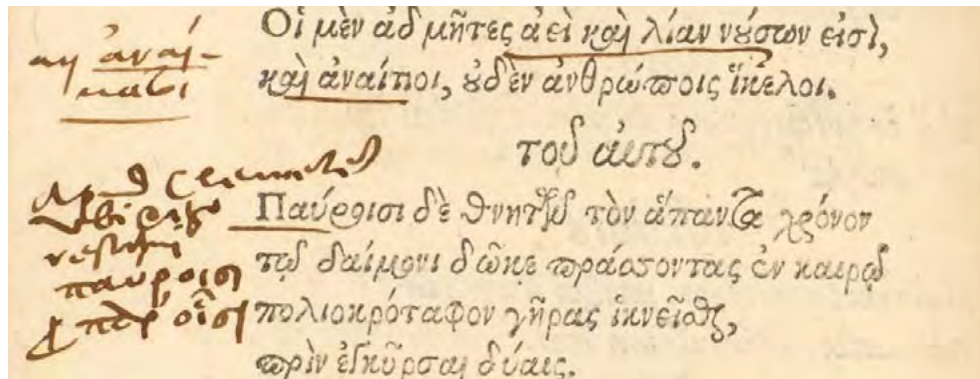 an ἀναί-
Οἱ μὲν ἀδμῆτες ἀεὶ καὶ λίαν νούσων εἰσὶ,
καὶ ἀναίτιοι, οὐδὲν ἀνθρώποις ἴκελοι.
τοῦ αὐτοῦ.
Παύροισι δὲ θνητῶν τὸν ἅπαντα χρόνον
τῷ δαίμονι δῶκε πράσσοντας ἐν καιρῷ
πολιοκρόταφον γῆρας ἱκνεῖσθαι,
πρὶν ἐγκῦρσαι δύαις.
ubi ego
restitui
παύροισι
παρ' οἷσι